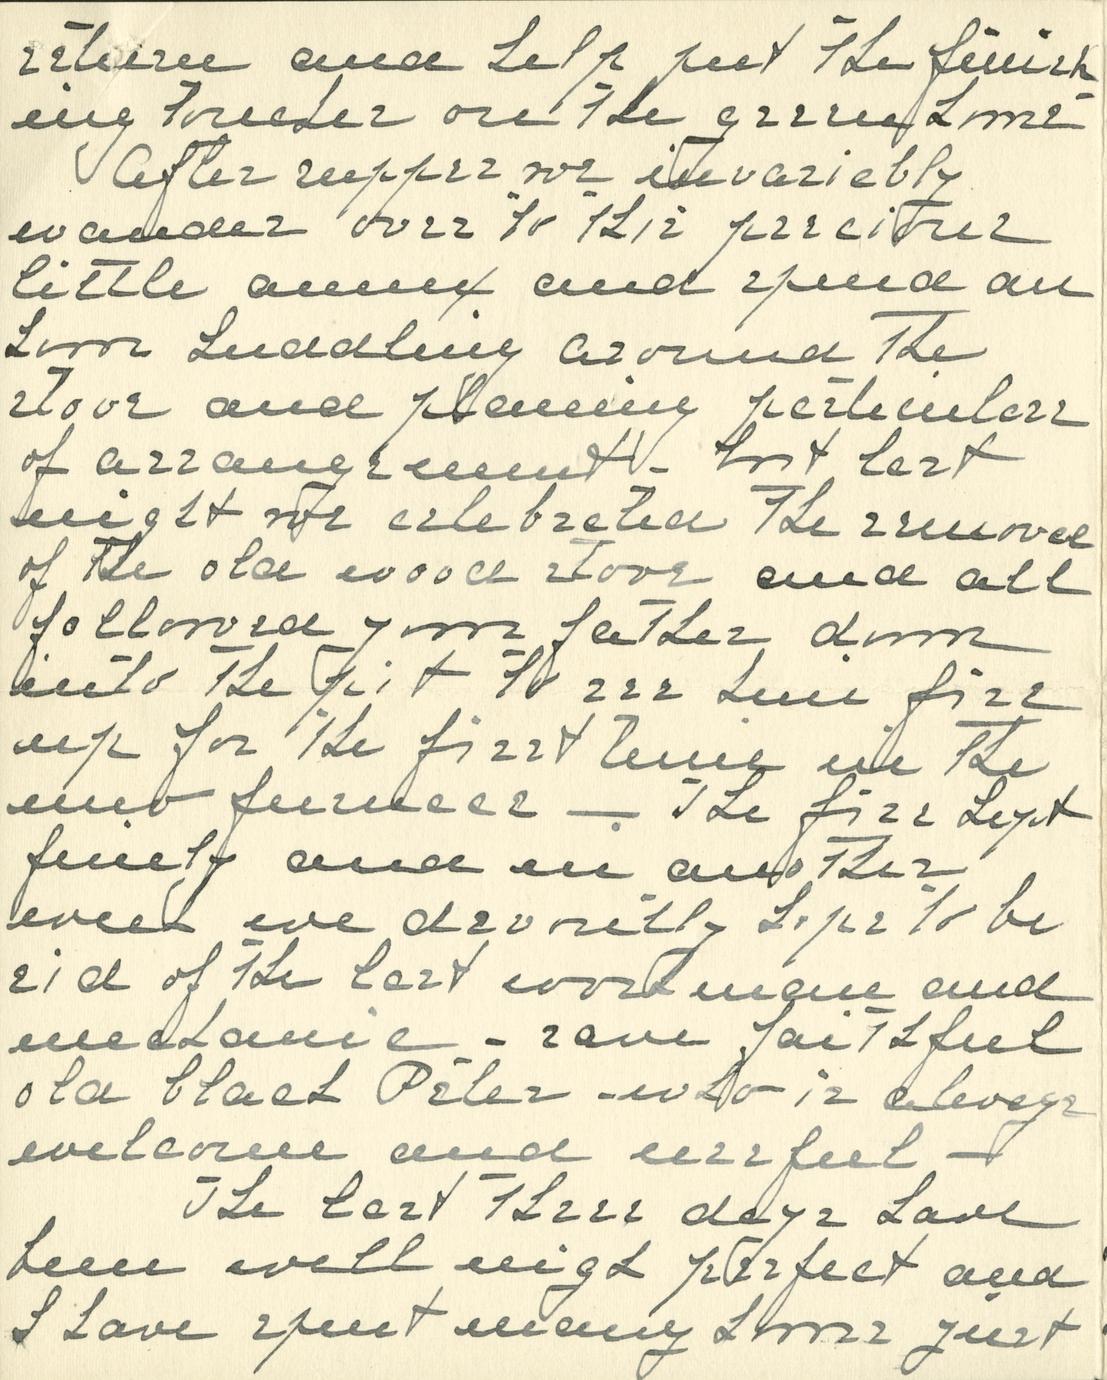 return and help put the finish-
ing touches on the green house
After supper we invariably
wander over to this precious
little annex and spend an
hour huddling around the
stove and planning particulars
of arrangement - but last
night we celebrated the removal
of the old wood stove and all
followed your father down
into the pit to see him fire
up for the first time in the
new furnace — The fire kept
finely and in another
week we devoutly hope to be
rid of the last workman and
mechanic - save faithful
old black Peter - who is always
welcome and useful —
The last three days have
been well nigh perfect and
I have spent many hours just